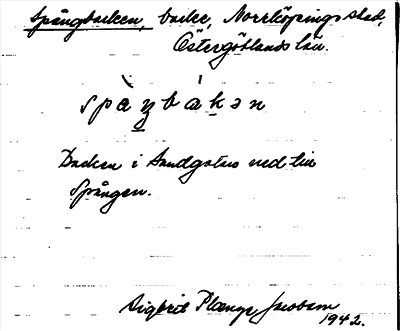 Spångbacken, backe, Norrköpings stad,
Östergötlands län.
spàŋbákən
Backen i Sandgatan ned till
Spången.
Sigbrit Plænge Jacobson
1942.